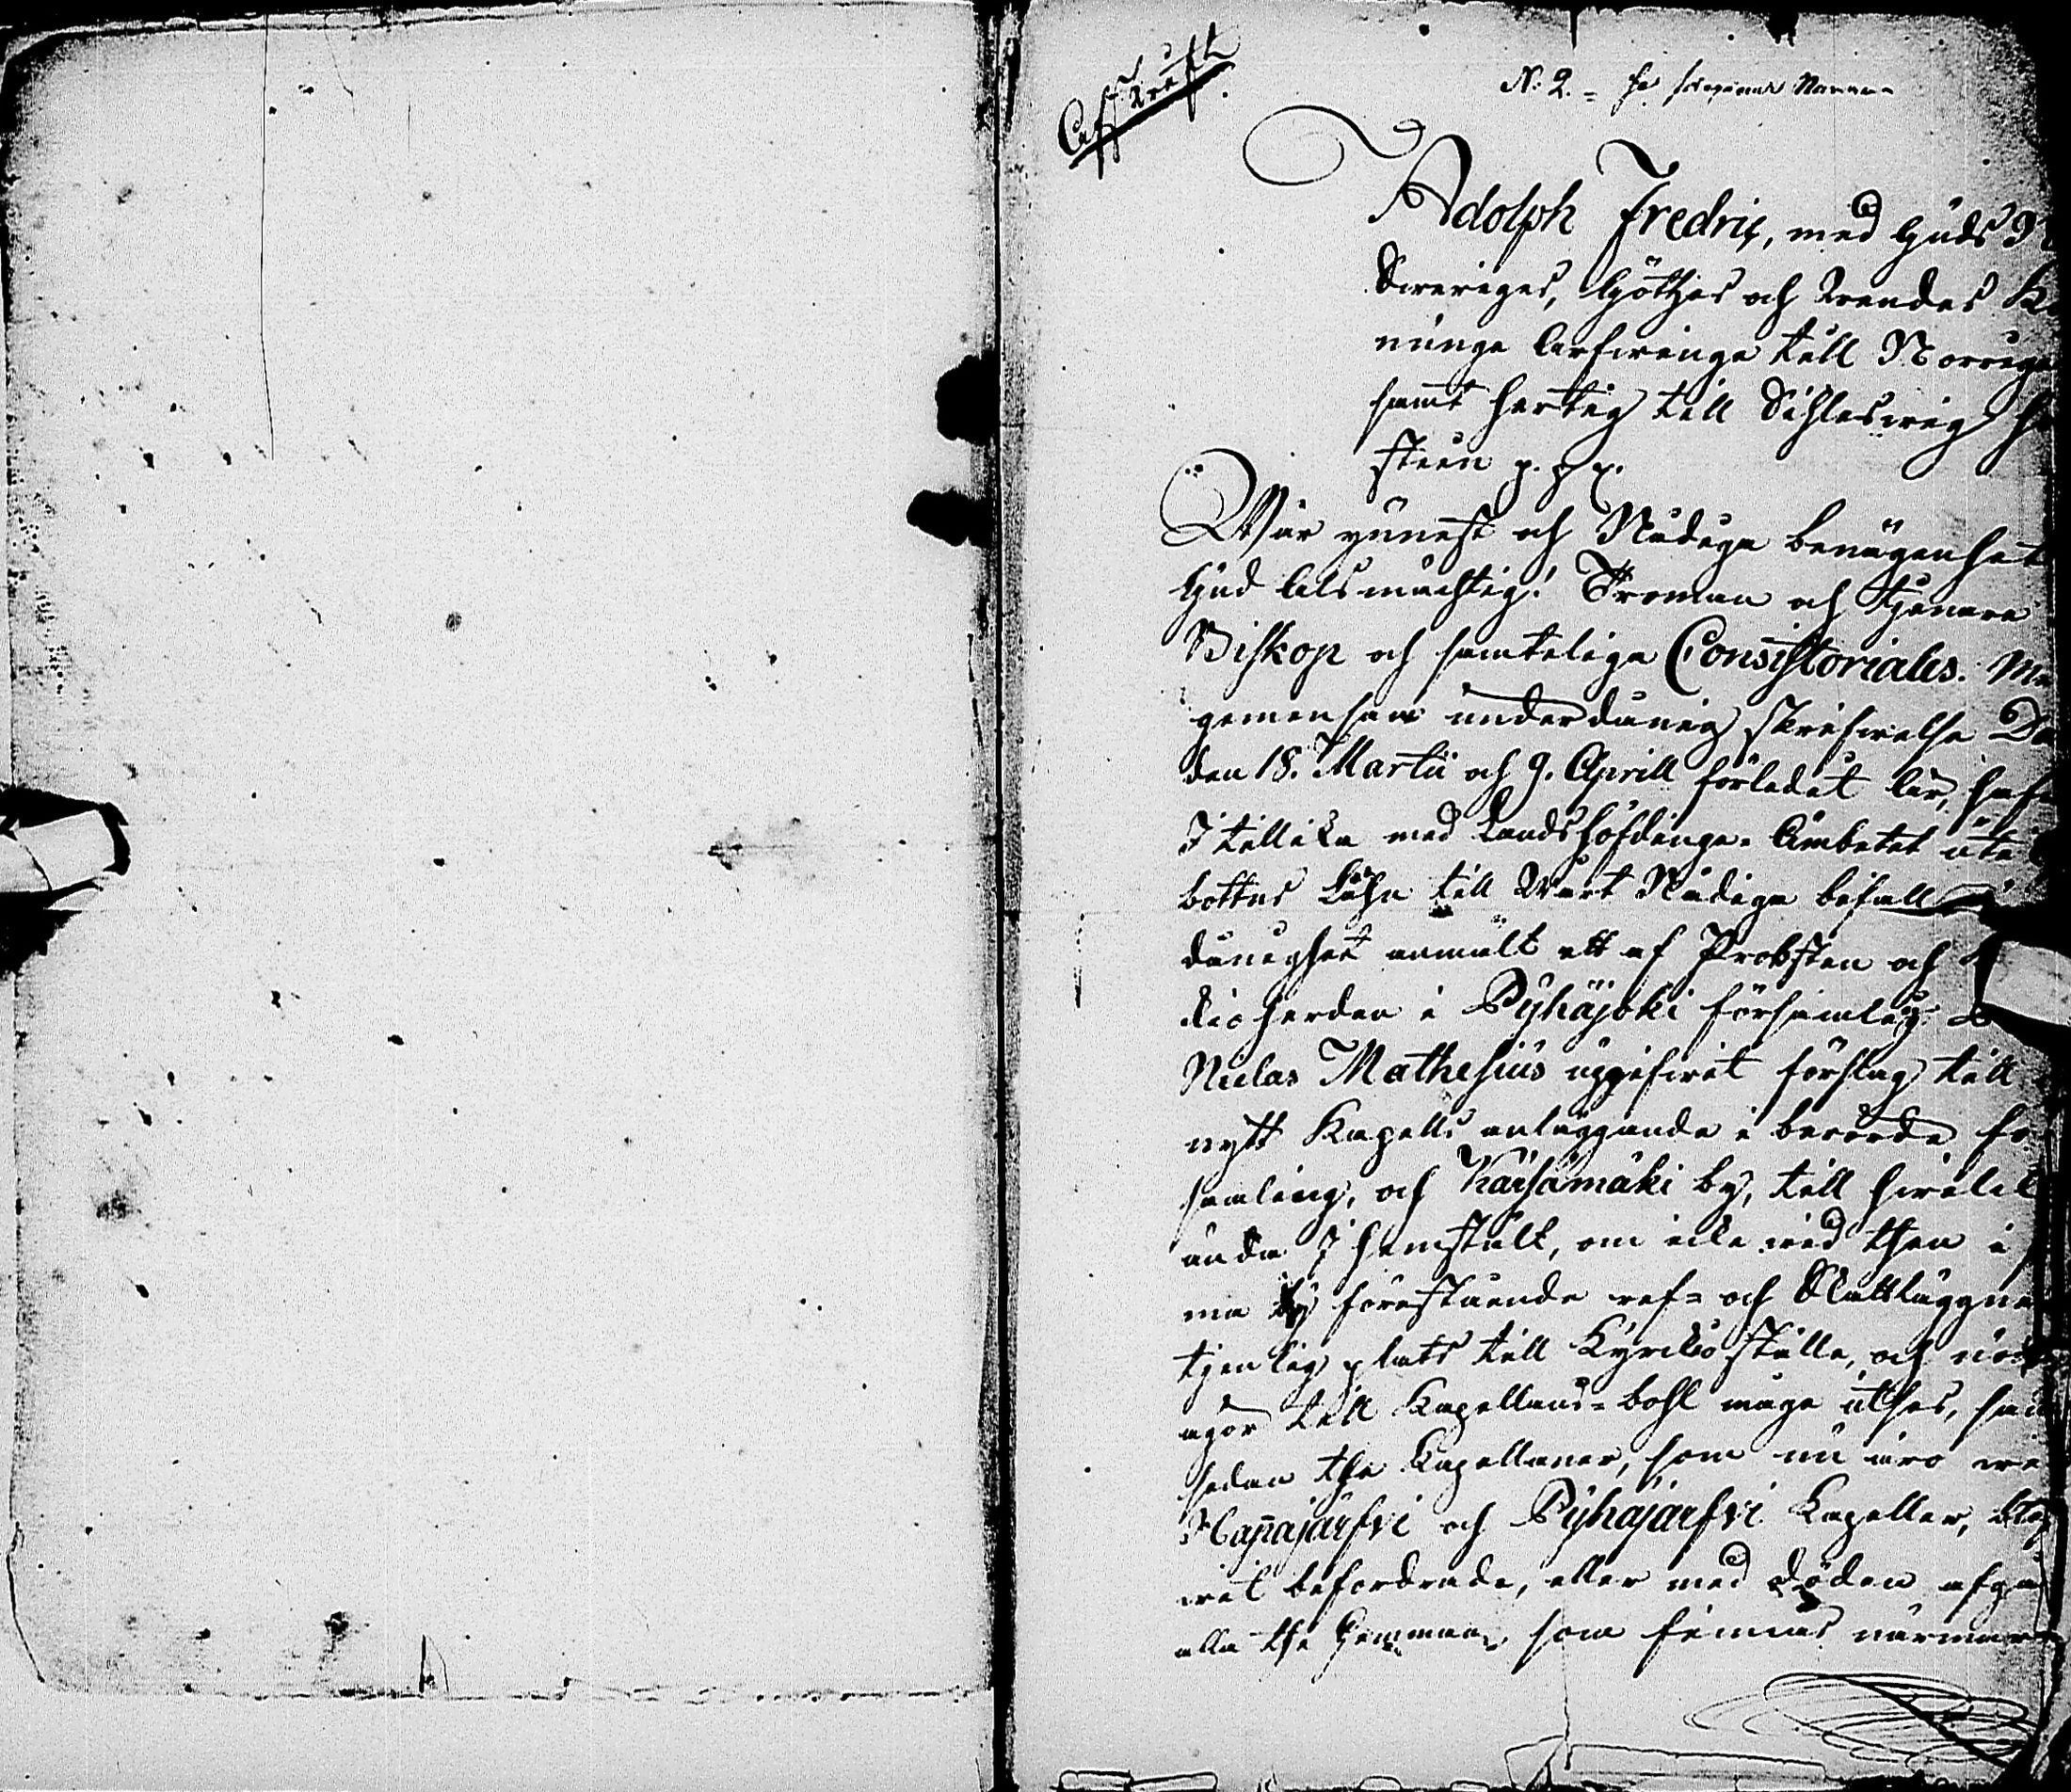 Afskrift.
N. 2. =
Adolph Fredric, med Guds N
Sweriges, Göthes och Wendes K
nunge Arfwinge till Norrige
samt Hertig till Schleswig Ho
stein p. p. p.
Wår ynnest och Nådiga benägenhet
Gud Alsmächtig! Troman och Tjenare
Biskop och samtelige Consistoriales. Me
gemensam underdånig skrifwelse Da
den 18. Martii och 9. Aprill förledet år, hafw
I tillika med Landshöfdinge-Ämbetet uti
bottns Lähn till Wårt Nådiga befall
dånighet anmält ett af Probsten och
kioherden i Pyhäjoki församlig
Niclas Mathesius uppgifwit förslag till
nytt Kapells anläggande i berörde för
samling, och Kärsämäki by, till hwilck
ända I hemstält, om icke wid then i
ma by förestående ref- och Skattläggne
tjenlig plats till Kyrckio ställe, och nö
ägor till Kapellans-bohl måge uthses, sam
sedan the Kapellaner, som nu äro we
Hapajärfvi och Pyhäjärfvi Kapeller, blef
wit befordrade, eller med döden afgå
alla the Hemman, som finnas närmare